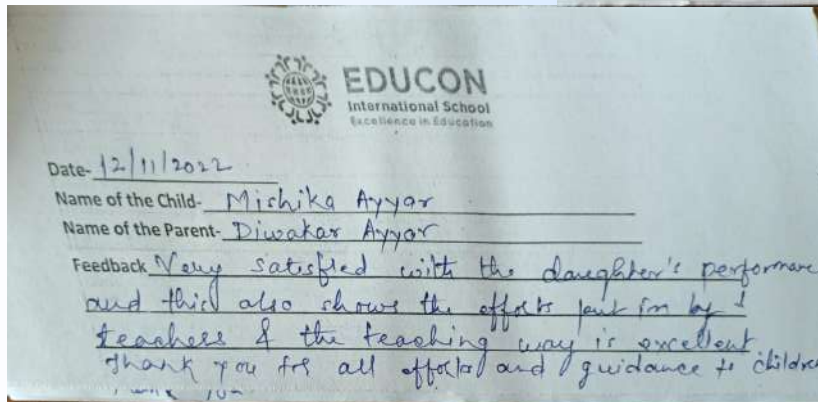 EDUCON
International School
Excellence in Education
Date- 12/11/2022
Name of the Child- Mishika Ayyar
Name of the Parent- Diwakar Ayyar
Feedback Very satisfied with the daughter's performance
and this also shows the efforts put in by
teachers & the teaching way is excellent
Thank you for all efforts and guidance to children